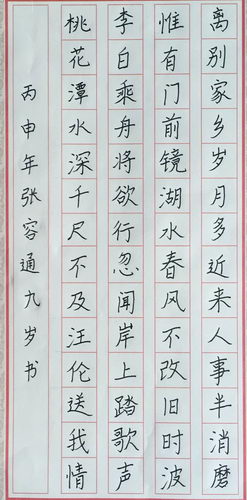 离别家乡岁月多近来人事半消磨
惟有门前镜湖水春风不改旧时波
李白乘舟将欲行忽闻岸上踏歌声
桃花潭水深千尺不及汪伦送我情
丙申年张容通九岁书